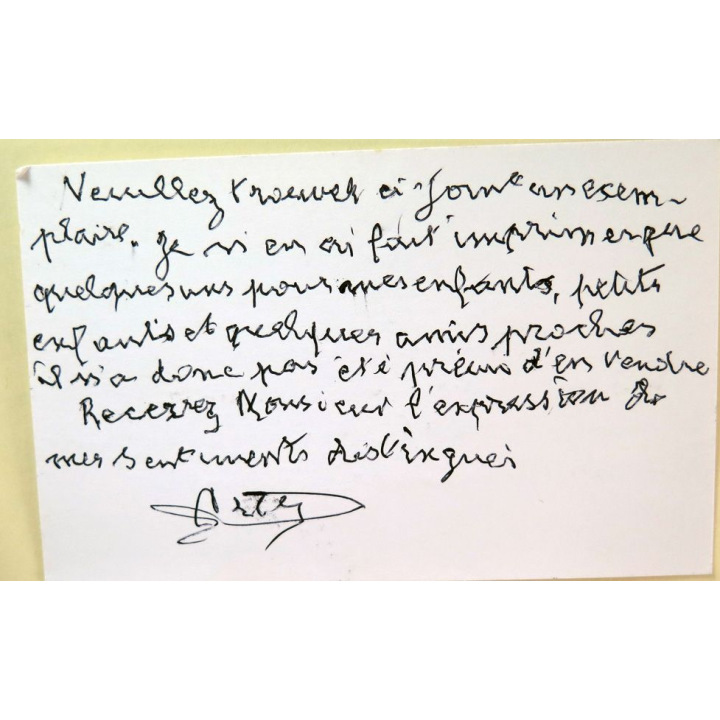 Veuillez trouver ci-joint un exem-
plaire. Je n'en ai fait imprimer que
quelques uns pour mes enfants, petits
enfants et quelques amis proches
il n'a donc pas été prévu d'en vendre
Recevez Monsieur l'expression de
mes sentiments distingués